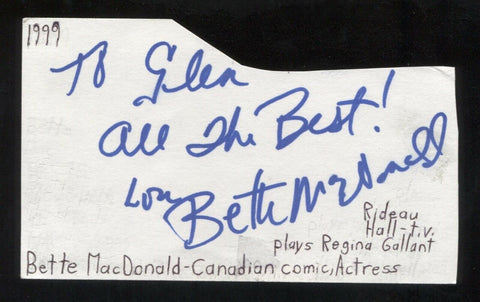 1999
To Glen
All The Best!
Love
Bette MacDonald
Rideau
Hall-t.v.
plays Regina Gallant
Bette MacDonald-Canadian comic, Actress